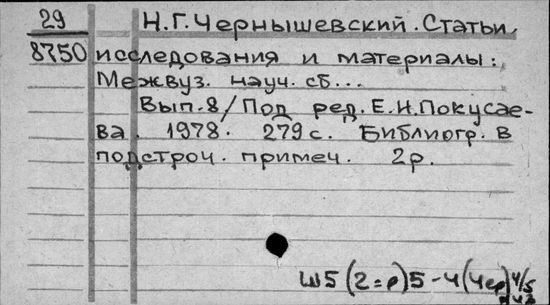 29 Н.Г.Чернышевский. Статьи,
8750 исследования и материалы:
Межвуз. науч. сб...
Вып.8/Под ред. Е.И.Покусае-
ва. 1978. 279с. Библиогр. в
подстроч. примеч. 2р.
Ш5(2=р)5-4(Чер)